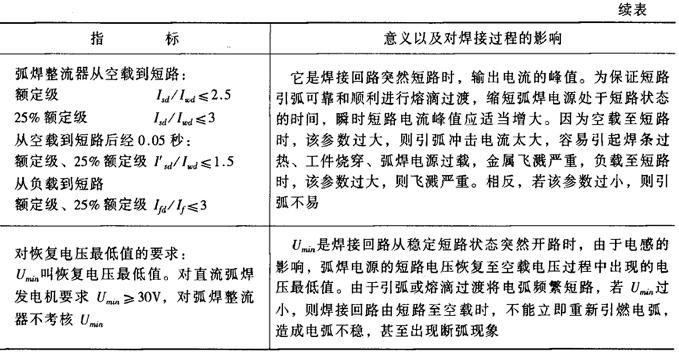 续表
指 标
意义以及对焊接过程的影响
弧焊整流器从空载到短路：
额定级 Isd/Iwd≤2.5
25%额定级 Isd/Iwd≤3
从空载到短路后经0.05秒：
额定级、25%额定级 I′sd/Iwd≤1.5
从负载到短路
额定级、25%额定级 Ifd/If≤3
它是焊接回路突然短路时，输出电流的峰值。为保证短路
引弧可靠和顺利进行熔滴过渡，缩短弧焊电源处于短路状态
的时间，瞬时短路电流峰值应适当增大。因为空载至短路
时，该参数过大，则引弧冲击电流太大，容易引起焊条过
热、工件烧穿、弧焊电源过载，金属飞溅严重，负载至短路
时，该参数过大，则飞溅严重。相反，若该参数过小，则引
弧不易
对恢复电压最低值的要求：
Umin叫恢复电压最低值。对直流弧焊
发电机要求 Umin≥30V，对弧焊整流
器不考核 Umin
Umin是焊接回路从稳定短路状态突然开路时，由于电感的
影响，弧焊电源的短路电压恢复至空载电压过程中出现的电
压最低值。由于引弧或熔滴过渡将电弧频繁短路，若 Umin过
小，则焊接回路由短路至空载时，不能立即重新引燃电弧，
造成电弧不稳，甚至出现断弧现象